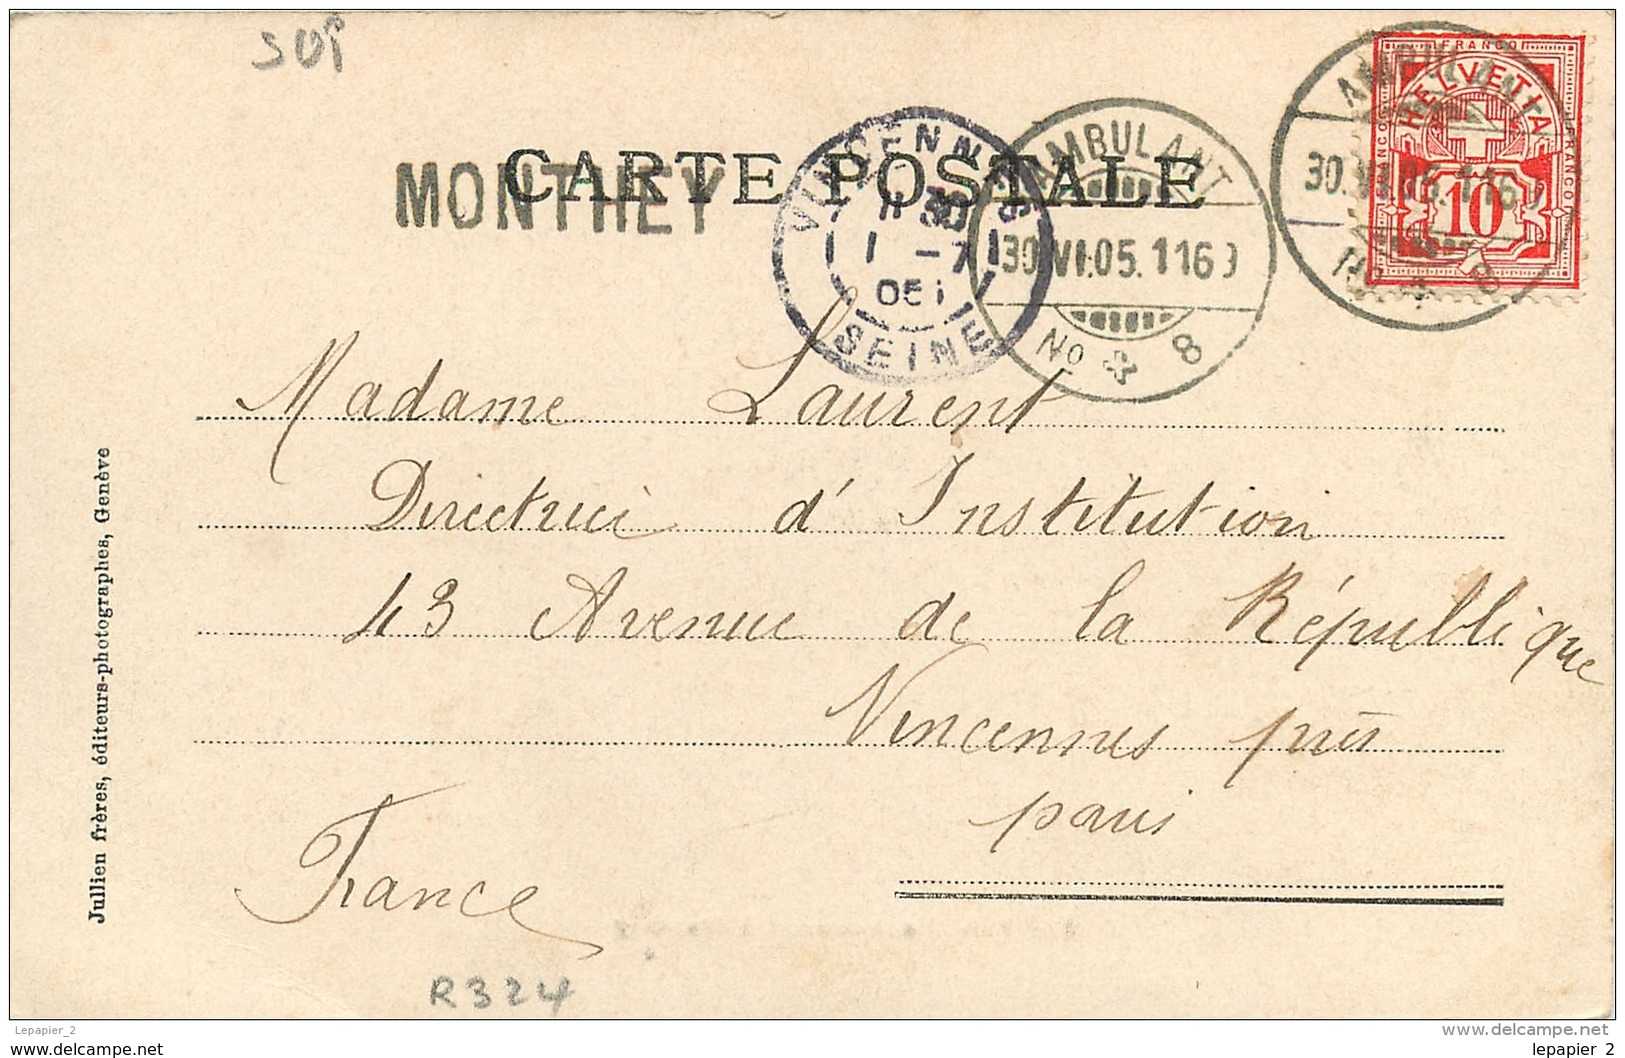 SUI
FRANCO
HELVETIA
FRANCO
FRANCO
10
AMBULANT
30.VI.05.116
No 8
AMBULANT
30.VI.05.116
No 8
VINCENNES
11 30
1 - 7
05
SEINE
MONTHEY
CARTE POSTALE
Madame Laurent
Directrice d'Institution
43 Avenue de la République
Vincennes près
paris
France
Jullien frères, éditeurs-photographes, Genève
R324
Lepapier_2
www.delcampe.net
www.delcampe.net
lepapier_2